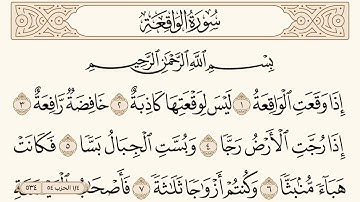 سُورَةُ الوَاقِعَةِ
بِسْمِ ٱللَّهِ ٱلرَّحْمَٰنِ ٱلرَّحِيمِ
إِذَا وَقَعَتِ ٱلْوَاقِعَةُ ١ لَيْسَ لِوَقْعَتِهَا كَاذِبَةٌ ٢ خَافِضَةٌ رَّافِعَةٌ ٣
إِذَا رُجَّتِ ٱلْأَرْضُ رَجًّا ٤ وَبُسَّتِ ٱلْجِبَالُ بَسًّا ٥ فَكَانَتْ
هَبَآءً مُّنۢبَثًّا ٦ وَكُنتُمْ أَزْوَٰجًا ثَلَٰثَةً ٧ فَأَصْحَٰبُ
١/٤ الحزب ٥٤
٥٣٤